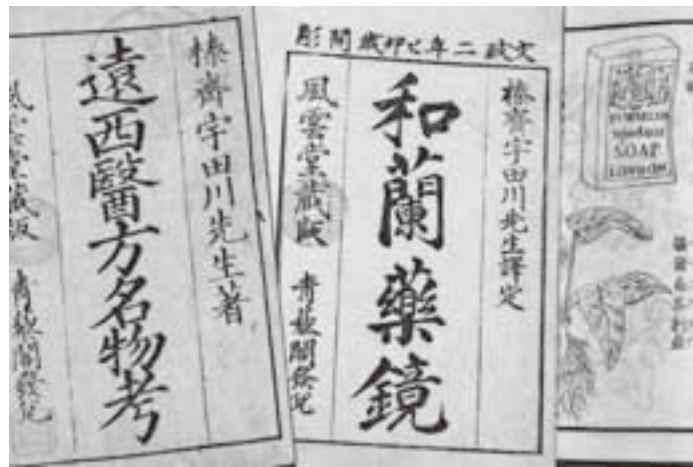 文政二年己卯歳開彫
榛齋宇田川先生譯定
和蘭藥鏡
風雲堂蔵版 青藜閣發兌
榛齋宇田川先生著
遠西醫方名物考
風雲堂蔵版 青藜閣發兌
SOAP
LONDON